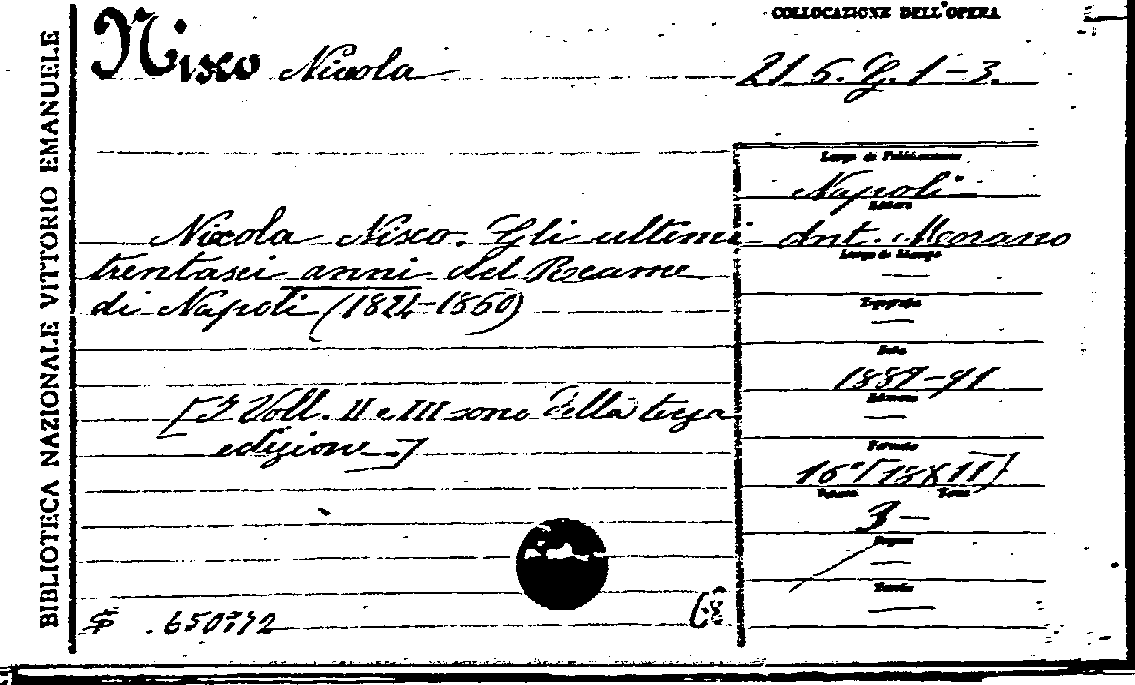 BIBLIOTECA NAZIONALE VITTORIO EMANUELE
Nisco Nicola
COLLOCAZIONE DELL'OPERA
215. G. 1-3.
Nicola Nisco. Gli ultimi
trentasei anni del Reame
di Napoli (1824-1860)
[I Voll. II e III sono della terza
edizione.]
Luogo di Pubblicazione
Napoli
Editore
Ant. Morano
Luogo di Stampa
—
Tipografia
—
Data
1889-91
Edizione
—
Formato
16° [18X11]
Volume Tomo
3 —
Pagine
—
Tavole
—
650772